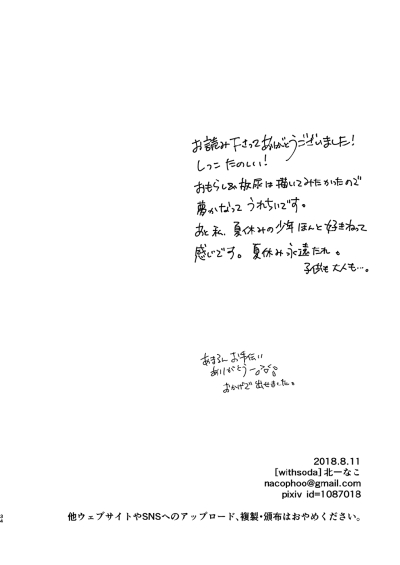 お読み下さってありがとうございました!
しっこ たのしい!
おもらし&放尿は描いてみたかったので
夢かなって うれちいです。
あと私、夏休みの少年ほんと好きねって
感じです。夏休み永遠たれ。
子供も大人も…。
お手伝い
ありがとう
おかげで 出せました。
2018.8.11
[withsoda]北一なこ
nacophoo@gmail.com
pixiv id=1087018
他ウェブサイトやSNSへのアップロード、複製・頒布はおやめください。